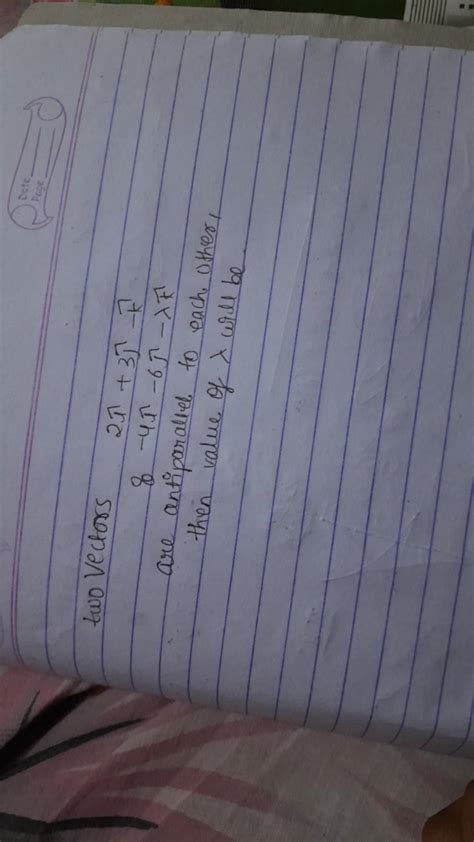 Date
Page
two vectors 2î + 3ĵ - k̂
& -4î - 6ĵ - λk̂
are antiparallel to each other,
then value of λ will be